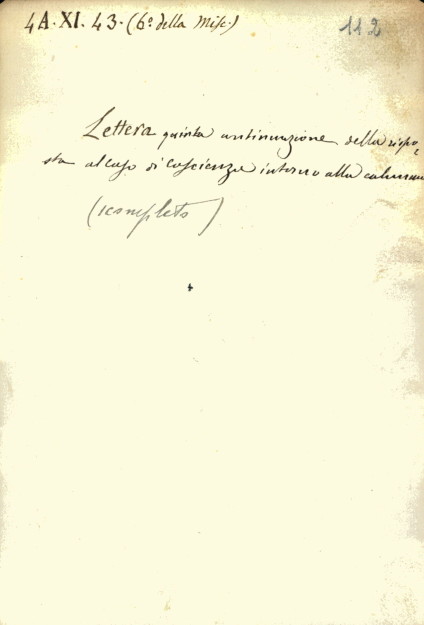 4A. XI. 43. (6º della Misc.)
112
Lettera quinta continuazione della rispo-
sta al caso di coscienza intorno alla calunnia
(icompleto)